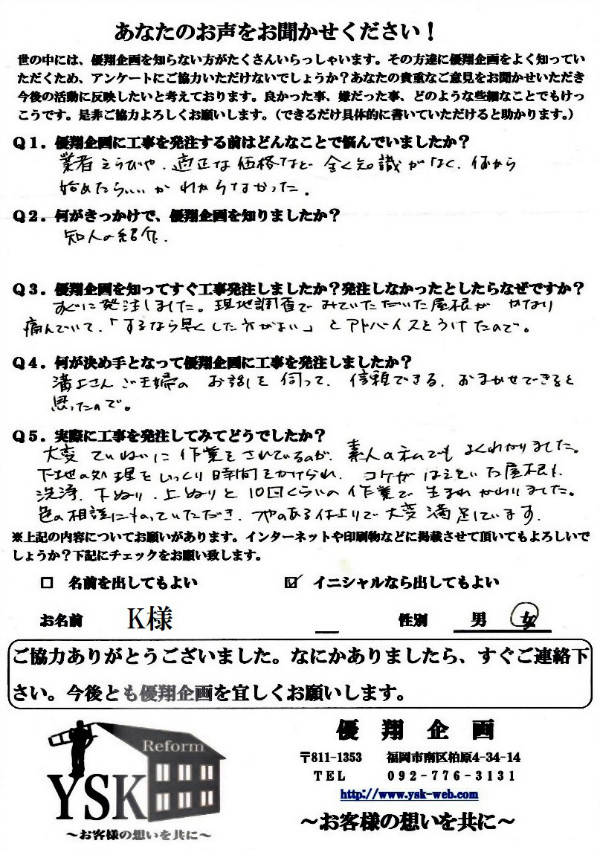 あなたのお声をお聞かせください！
世の中には、優翔企画を知らない方がたくさんいらっしゃいます。その方達に優翔企画をよく知ってい
ただくため、アンケートにご協力いただけないでしょうか？あなたの貴重なご意見をお聞かせいただき
今後の活動に反映したいと考えております。良かった事、嫌だった事、どのような些細なことでもけっ
こうです。是非ご協力よろしくお願いします。（できるだけ具体的に書いていただけると助かります。）
Q１．優翔企画に工事を発注する前はどんなことで悩んでいましたか？
業者えらびや、適正な価格など全く知識がなく、何から
始めたらいいかわからなかった。
Q２．何がきっかけで、優翔企画を知りましたか？
知人の紹介．
Q３．優翔企画を知ってすぐ工事発注しましたか？発注しなかったとしたらなぜですか？
すぐに発注しました。現地調査でみていただいた屋根がかなり
痛んでいて、「するなら早くした方がよい」とアドバイスをうけたので。
Q４．何が決め手となって優翔企画に工事を発注しましたか？
溝上さんご夫婦のお話しを伺って、信頼できる、おまかせできると
思ったので。
Q５．実際に工事を発注してみてどうでしたか？
大変ていねいに作業をされているのが、素人の私でもよくわかりました。
下地の処理をじっくり時間をかけられ、コケがはえていた屋根も、
洗浄、下ぬり、上ぬりと10回くらいの作業で生まれかわりました。
色の相談にものっていただき、つやのある仕上りで大変満足しています．
※上記の内容についてお願いがあります。インターネットや印刷物などに掲載させて頂いてもよろしいで
しょうか？下記にチェックをお願い致します。
□ 名前を出してもよい ☑ イニシャルなら出してもよい
お名前 K様 性別 男 女
ご協力ありがとうございました。なにかありましたら、すぐご連絡下
さい。今後とも優翔企画を宜しくお願いします。
Reform
YSK
～お客様の想いを共に～
優 翔 企 画
〒811-1353 福岡市南区柏原4-34-14
TEL 092-776-3131
http://www.ysk-web.com
～お客様の想いを共に～